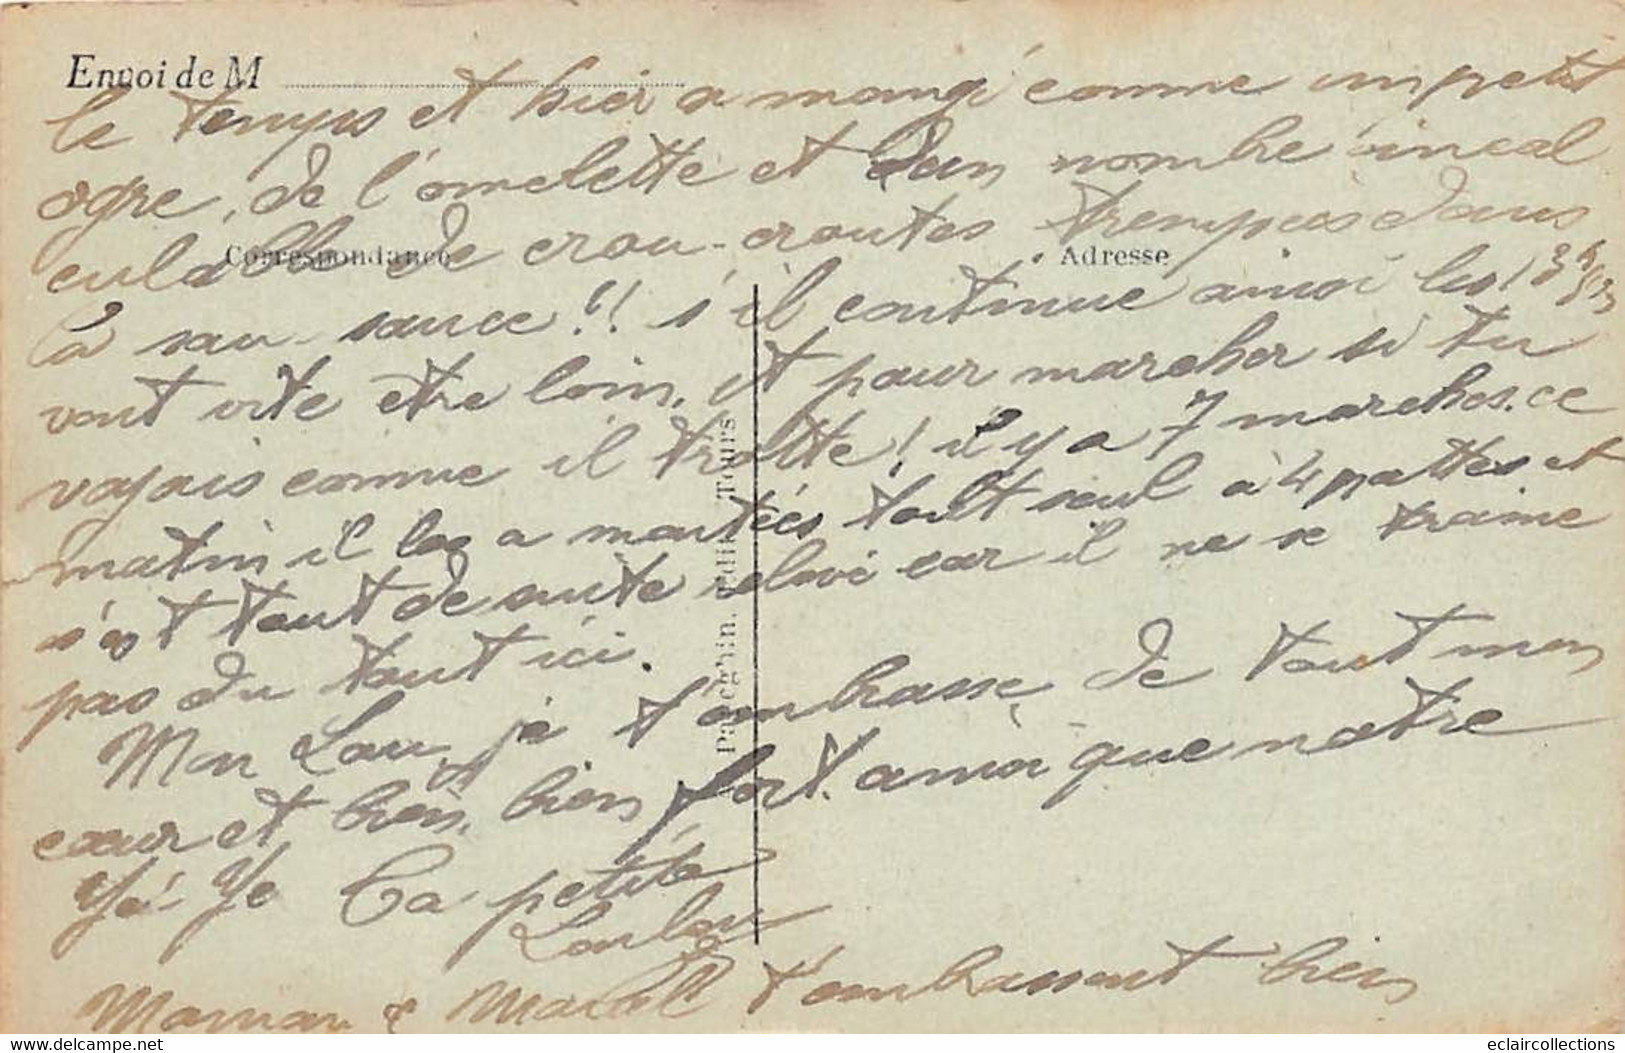 Envoi de M
le temps et hier a mangé comme un petit
ogre, de l'omelette et d'un nombre incal
culable de crou-croutes trempées dans
Correspondance Adresse
la sau-sauce!! s'il continue ainsi les
vont vite être loin, et pour marcher si tu
voyais comme il trotte! il y a 7 marches. ce
matin il les a montées tout seul à 4 pattes et
s'est tout de suite relevé car il ne se traine
pas du tout ici.
Mon Lou, je t'embrasse de tout mon
cœur et bien, bien fort. ainsi que notre
Yé-Ye Ta petite
Loulou
Maman & Marcel t'embrassent bien
Édit. Tours
www.delcampe.net
eclaircollections